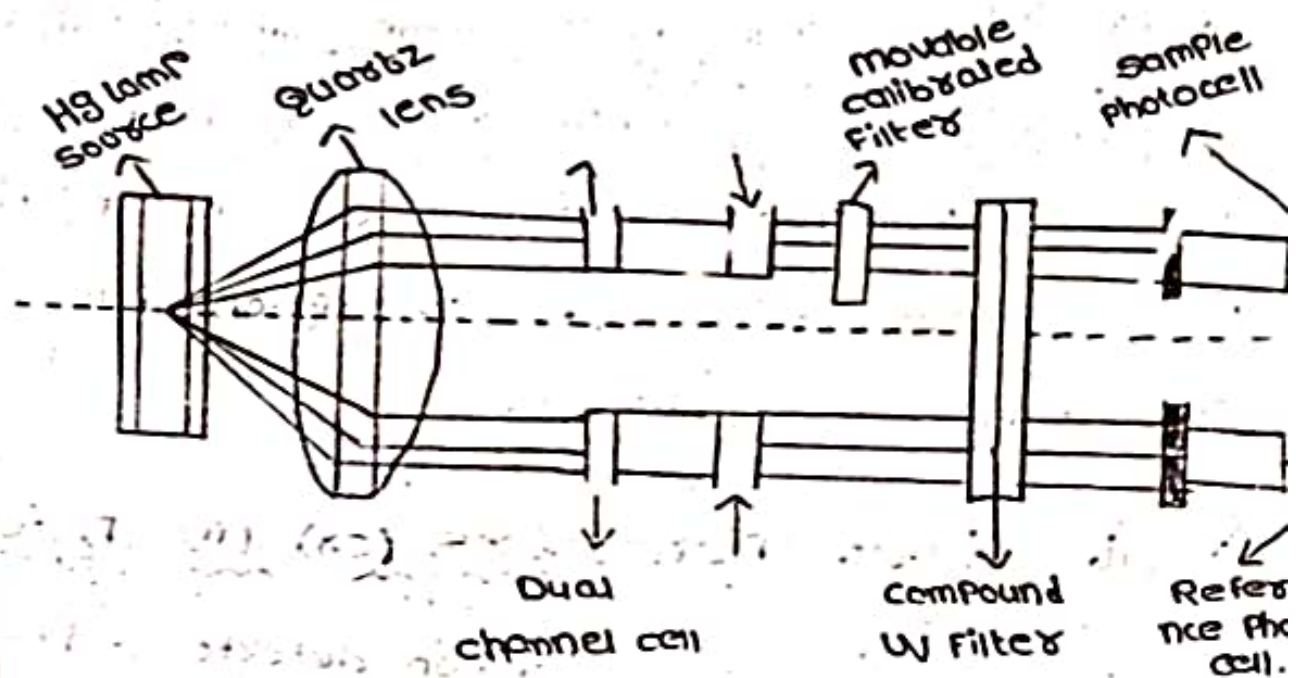 Hg lamp
source
Quartz
lens
movable
calibrated
Filter
sample
photocell
Dual
channel cell
compound
UV Filter
Refer
nce Pho
cell.